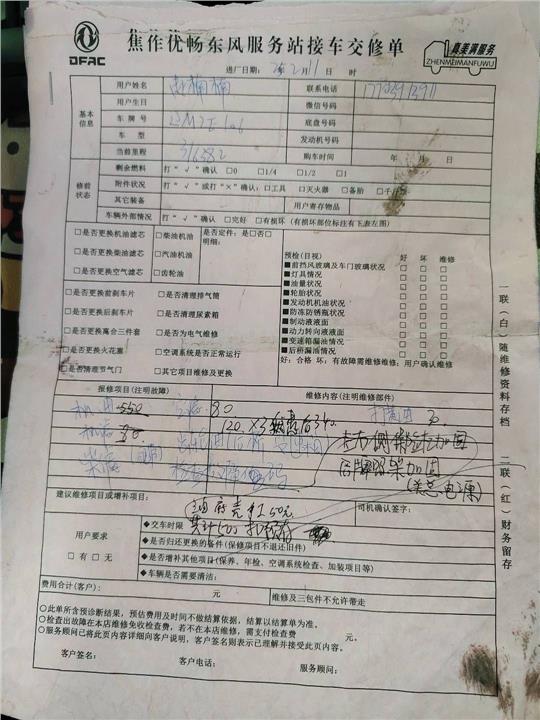 DFAC
焦作优畅东风服务站接车交修单
真美满服务
ZHENMEIMANFUWU
进厂日期: 年2月11日 时
基本信息
用户姓名 楠楠 联系电话
用户生日 微信号码
车牌号 底盘号码
车型 发动机号码
当前里程 316582 购车时间 年 月 日
修前状态
剩余燃料 打“√”确认 □0 □1/4 □1/2 □1
附件状况 打“√”或打“×”确认:□工具 □灭火器 □备胎 □千斤
其它装备 用户寄存物品
车辆外部情况 打“√”确认 □完好 □有损坏 (有损坏部位标注有下表左图)
□是否更换机油滤芯 □柴油机油 是否定件: 是□否□
明细:
□是否更换柴油滤芯 □汽油机油
□是否更换空气滤芯 □齿轮油
□是否更换前刹车片 □是否清理排气筒
□是否更换后刹车片 □是否清理尿素箱
□是否更换离合三件套 □是否为电气维修
□是否更换火花塞 □空调系统是否正常运行
□是否清理节气门 □其它项目维修及更换
预检(目视) 好 坏 维修
■前挡风玻璃及车门玻璃状况 □ □ □
■灯具情况 □ □ □
■油量状况 □ □ □
■轮胎状况 □ □ □
■发动机机油状况 □ □ □
■防冻防锈瓶状况 □ □ □
■制动液液面 □ □ □
■动力转向液液面 □ □ □
■变速箱漏油情况 □ □ □
■后桥漏油情况 □ □ □
好: 合格 坏: 有故障需维修维修: 用户确认维修
报修项目(注明故障) 维修内容(注明维修部件)
机油 550 80
机滤 30 120×3
右侧 加固
架加固
建议维修项目或增补项目: 司机确认签字:
油底壳 工50元
共计500
用户要求
□有 □无
◆交车时限
◆是否归还更换的备件(保修项目不退还旧件)
◆是否增补其他项目(保养、年检、空调系统检查、加装项目等)
◆车辆是否需要清洁:
费用合计(客户): 元 维修及三包件不允许带走
○此单所含预诊断结果,预估费用及时间不做结算依据,结算以结算单为准。
○检查出故障在本店维修免收检查费,若不在本店维修,需支付检查费 元。
○服务顾问已将此页内容详细向客户说明,客户签名则表示已理解并接受此页内容。
客户签名: 客户电话: 服务顾问:
一联(白)随维修资料存档
二联(红)财务留存